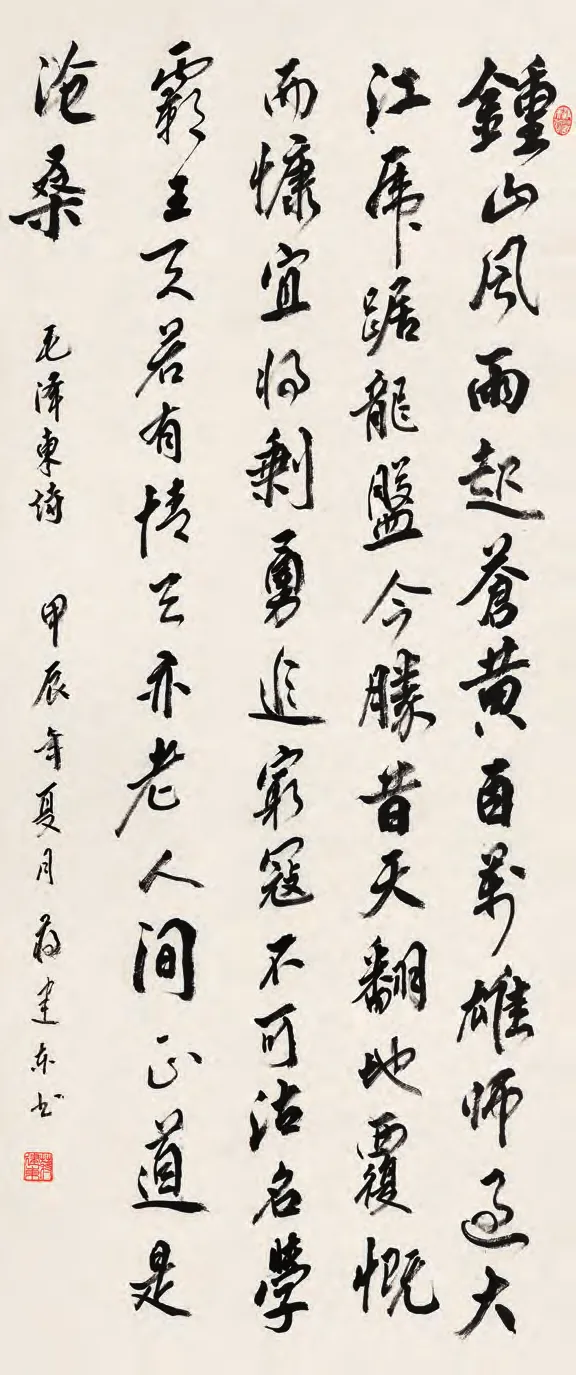 鍾山風雨起蒼黄百萬雄师过大
江虎踞龍盤今勝昔天翻地覆慨
而慷宜将剩勇追窮寇不可沽名學
霸王天若有情天亦老人间正道是
沧桑
毛泽東诗 甲辰年夏月 蒋建东书